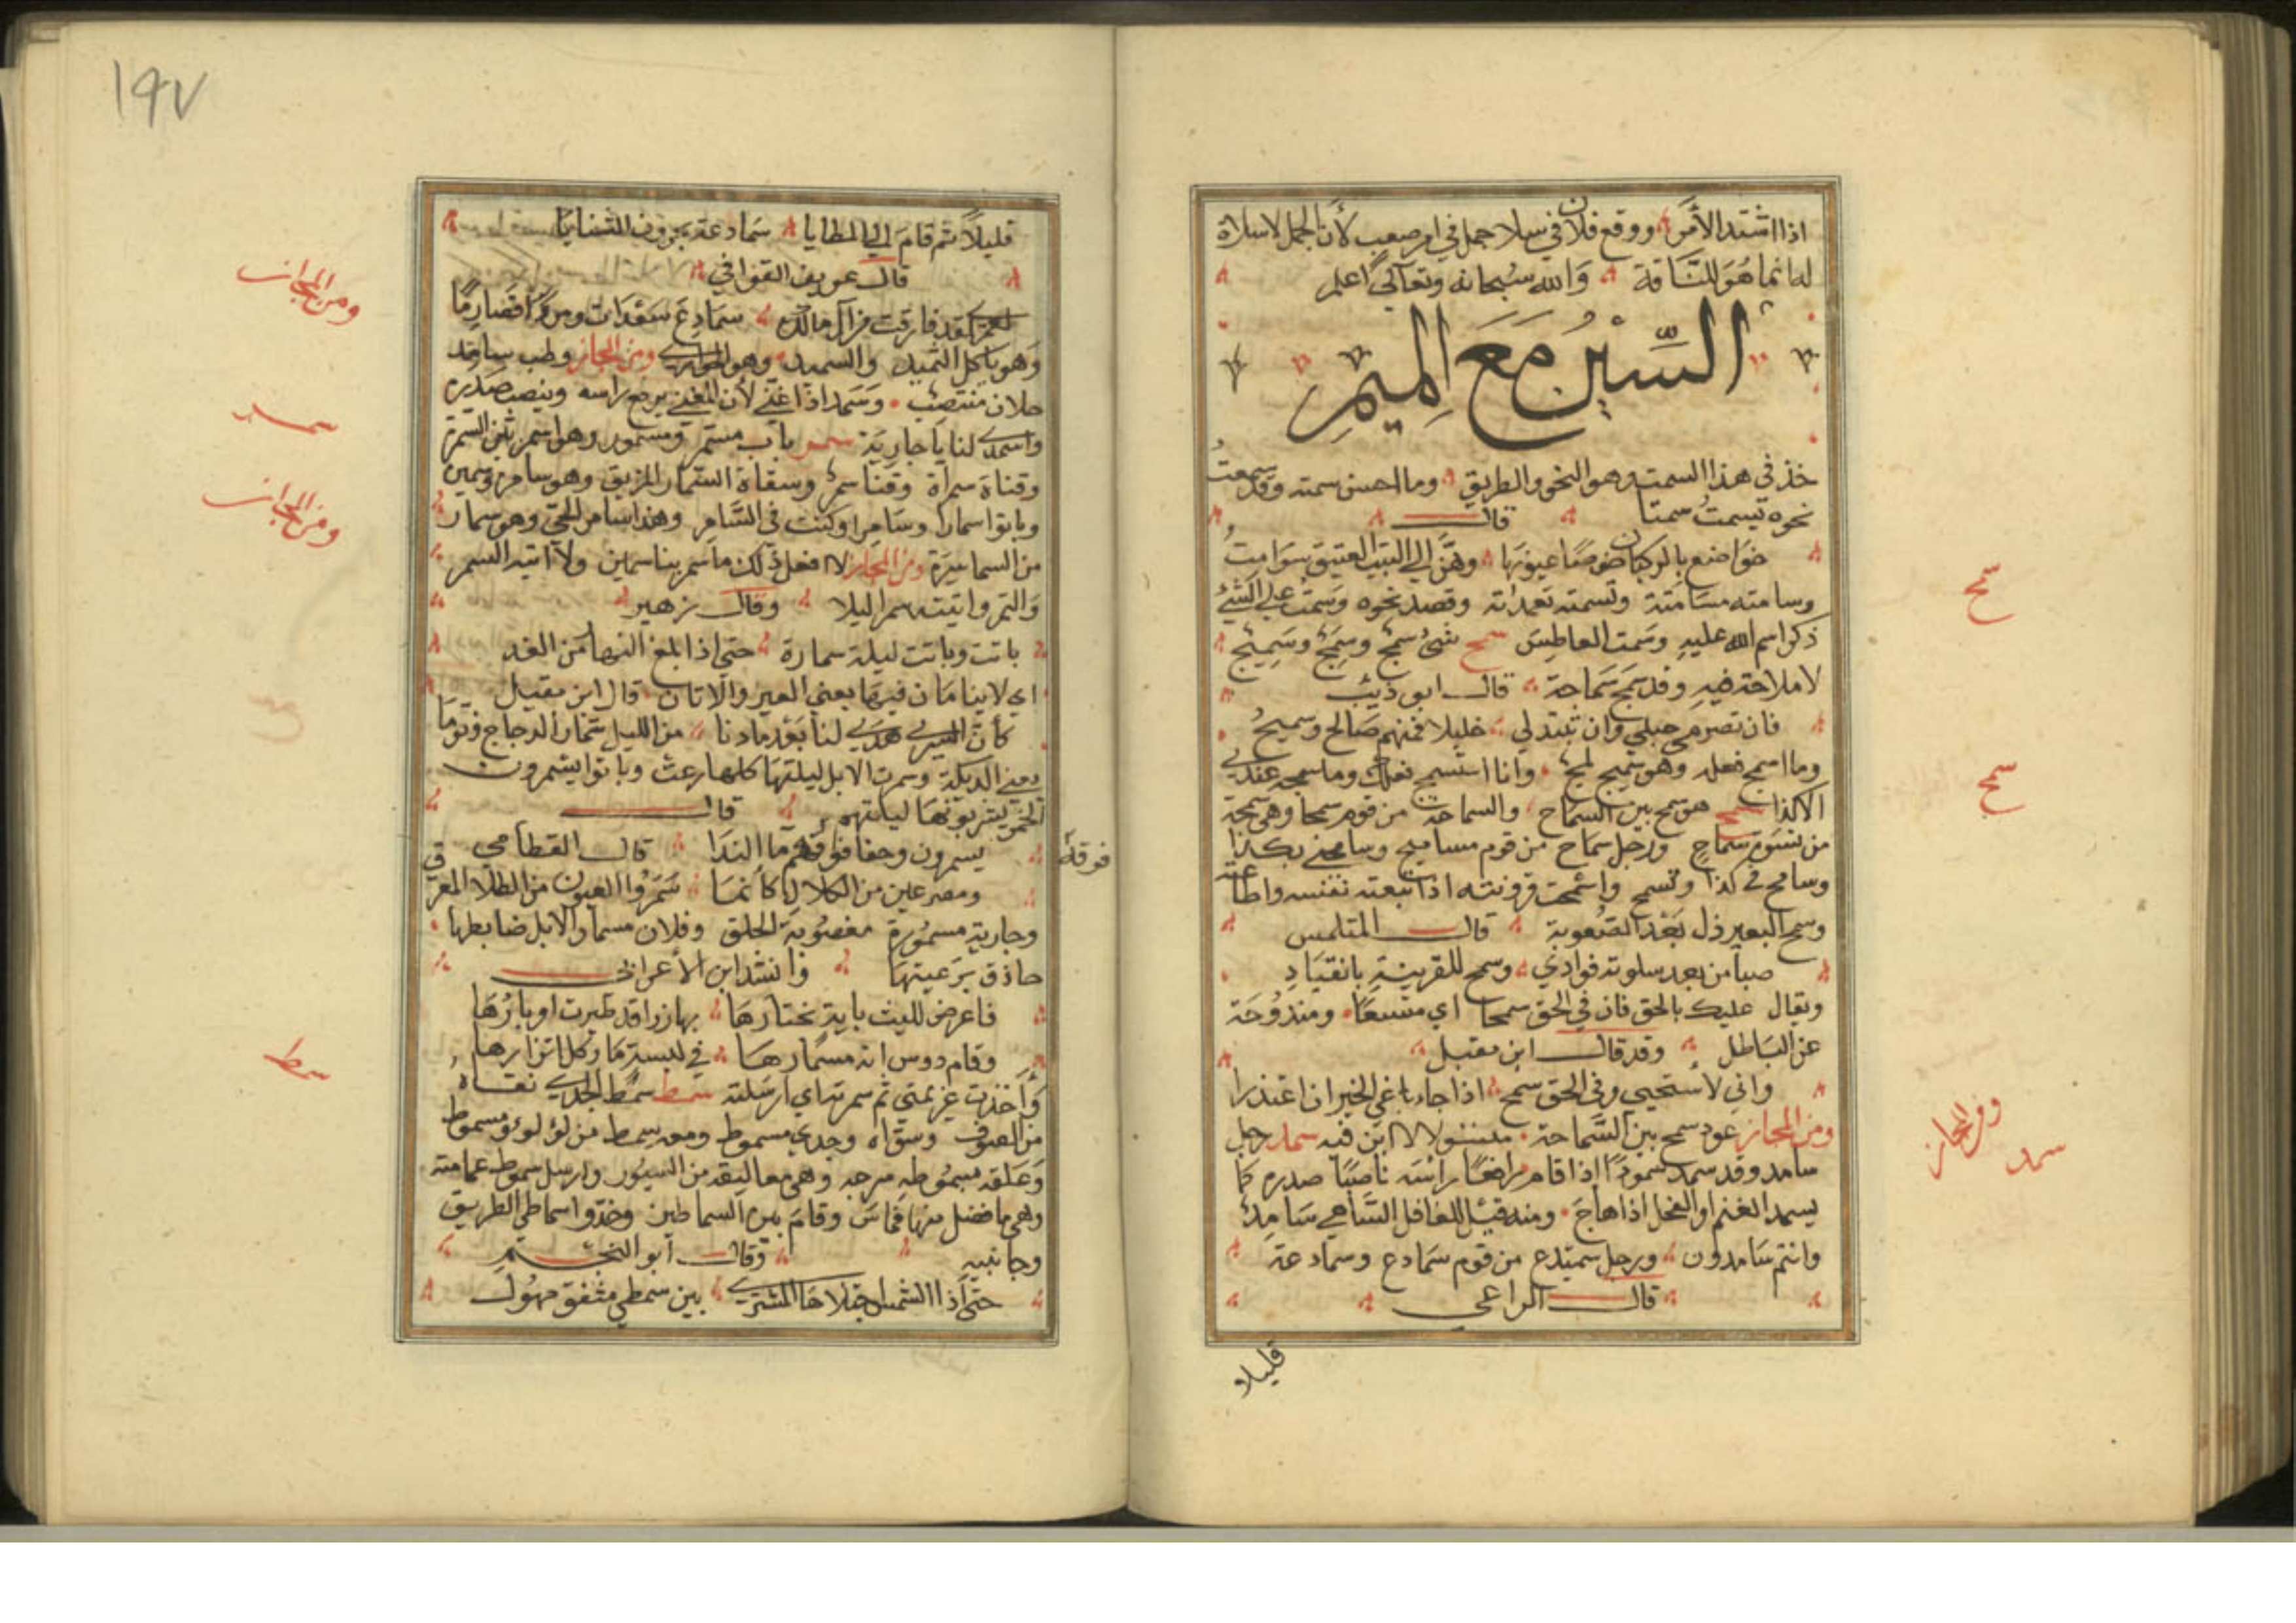 اذا اشتد الأمر ووقع فلان في سلا جمل في امر صعب لأن الجمل لا سلاة
له انما هو للناقة والله سبحانه وتعالى اعلم
السين مع الميم
خذ في هذا السمت وهو النحو والطريق وما احسن سمته وقد سمعت
نحوه تسمت سمتا قال
خواضع بالركبان خوصا عيونها وهن الى البيت العتيق سوامت
وسامته مسامتة وتسمته تعمداته وقصد نحوه وسمت على الشئ
ذكر اسم الله عليه وسمت العاطس سمج شئ سمج وسمج وسميج
لا ملاحة فيه وقد سمج سماجة قال ابو ذئب
فان تصرمي حبلي وان تبتدلي خليلا فمنهم صالح وسميج
وما اسمج فعله وهو سميج لمج وانا استسمج فعلك وما سمجه عندي
الا كذا سمح هو سمح بين السماح والسماحة من قوم سمحا وهي سمحة
من نسوة سماح ورجل سماح من قوم مساميح وسامحني بكذا
وسامح في كذا وتسمح واسمحت قرونته اذا تبعته نفسه واطاعته
وسمح البعير ذل بعد الصعوبة قال المتلمس
صبا من بعد سلوته فوادي وسمح للقرينة بانقياد
ويقال عليك بالحق فان في الحق سمحا اي متسعا ومندوحة
عن الباطل وقد قال ابن مقبل
واني لأستحيي وفي الحق سمح اذا جاء باغي الخير ان اعتذرا
ومن المجاز عود سمح بين السماحة مستو لا ابن فيه سمد رجل
سامد وقد سمد سمودا اذا قام رافعا راسه ناصبا صدره كما
يسمد الغنم او الفحل اذا هاج ومنه قيل للغافل الساهي سامد
وانتم سامدون ورجل سميدع من قوم سمادع وسمادعة
قال الراعي
قليلا
سمج
سمح
ومن المجاز
سمد
١٩٧
قليلا ثم قام الى المطايا سمادعة يجرون الثنايا
قال عويف القوافي
لعمرك لقد فارقت من آل مالك سمادع سعدات ومن
وهو ياكل الثميد والسميد وهو الحواري ومن المجاز وطب سامد
ملان منتصب وسمد اذا غنى لأن المغني يرفع راسه وينصب صدره
واسمدي لنا يا جارية سمر باب مستمر ومسمور وهو اسمر بين السمرة
وقناة سمراة وقنا سمر وسقاة السمار المزيق وهو سامري وسمير
وباتوا سمارا وسامرا وكنت في السامر وهذا سامر الحي وهو سمار
من السماسرة ومن المجاز لا افعل ذلك ما سمر بنا سمير ولا اتيه السمر
والتمر واتيته سمرا ليلا وقال زهير
باتت وباتت ليلة سمارة حتى اذا تلغ النهار من الغد
اي لا ينامان فيها يعني العير والاتان قال ابن مقبل
كأن السرى هدي لنا بعد ما دنا من الليل سمار الدجاج فنوما
يعني الديكة وسمرت الابل ليلتها كلها رعت وباتوا يسمرون
الخمر يشربونها ليلتهم قال
يسمرون وحفا فوقهم ما الندا قال القطامي
ومصرعين من الكلال كانما سمروا العيون من الطلا المعرق
وجارية مسمورة معصوبة الخلق وفلان مسمار الابل ضابطها
حاذق برعيتها وانشد ابن الأعرابي
فاعرض لليث باية نختارها بها زرا قد طيرت اوبارها
وقام دوس انه مسمارها في لبسة ما وكل اتزارها
واخذت غريمتي ثم سمرته اي ارسلته سمط سمط الجدي نقاه
من الصوف وشواه وجدي مسموط ومعه سمط من لؤلؤ وسموط
وعلقه بسموطه سرجه وهي معاليقه من السيور وارسل سموط عمامته
وهي ما فضل منها وقام بين السماطين وخذوا سماطي الطريق
وجانبيه وقال ابو النجم
حتى اذا الشمس اجتلاها المشتري بين سمطي شفق مهول
فوقه
ومن المجاز
سمر
ومن المجاز
سمط